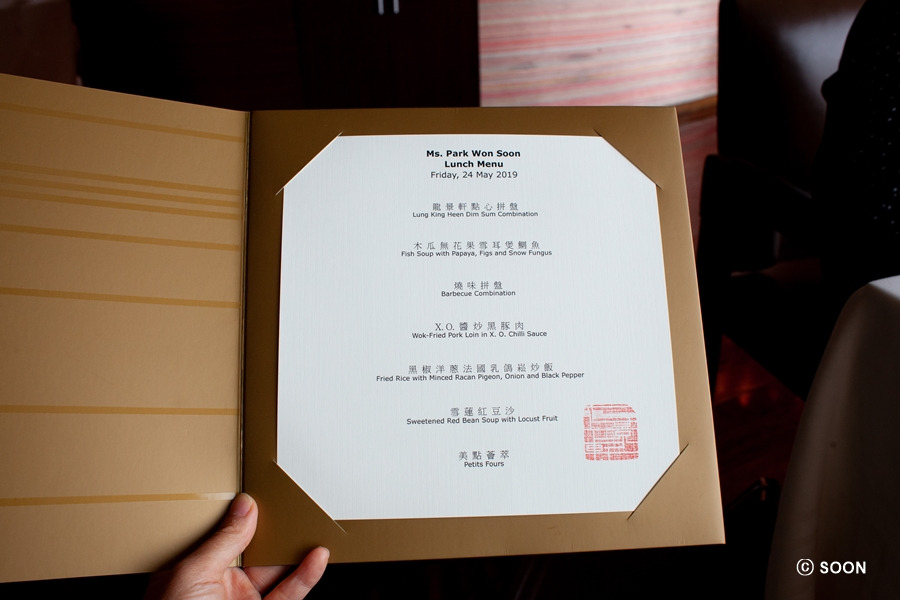 Ms. Park Won Soon
Lunch Menu
Friday, 24 May 2019
龍景軒點心拼盤
Lung King Heen Dim Sum Combination
木瓜無花果雪耳煲鯛魚
Fish Soup with Papaya, Figs and Snow Fungus
燒味拼盤
Barbecue Combination
X.O. 醬炒黑豚肉
Wok-Fried Pork Loin in X. O. Chilli Sauce
黑椒洋蔥法國乳鴿崧炒飯
Fried Rice with Minced Racan Pigeon, Onion and Black Pepper
雪蓮紅豆沙
Sweetened Red Bean Soup with Locust Fruit
美點薈萃
Petits Fours
© SOON